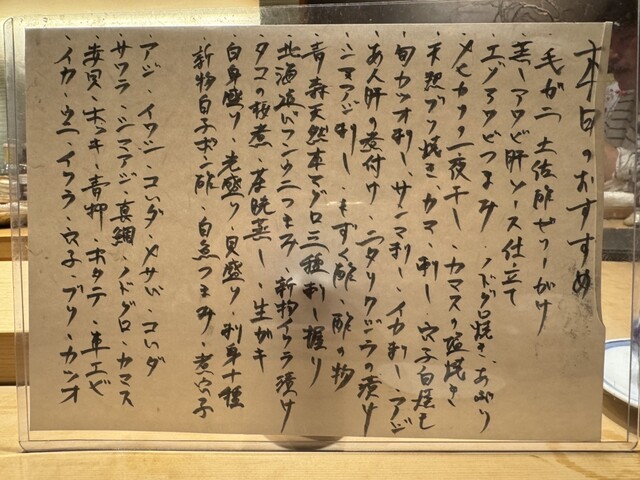 本日のおすすめ
・毛がニ 土佐酢ゼリーがけ
・蒸しアワビ肝ソース仕立て
・エゾアワビつまみ ・ノドグロ焼き、あぶり
・メヒカリの一夜干し ・カマスの塩焼き
・天然ブリ焼き、カマ、刺し ・穴子白焼き
・旬カツオ刺し ・サンマ刺し ・イカ刺し ・アジ
・あん肝の煮付け ・ニタリクジラの漬け
・シマアジ刺し ・もずく酢 ・酢の物
・青森天然本マグロ三種刺し 握り
・北海道バフンウニつまみ ・新物イクラ漬け
・タコの桜煮 ・茶碗蒸し ・生ガキ
・白身盛り ・光盛り ・貝盛り ・刺身十種
・新物白子ポン酢 ・白魚つまみ ・煮穴子
・アジ ・イワシ ・コハダ ・コハダ
・サワラ ・シマアジ ・真鯛 ・ノドグロ ・カマス
・赤貝 ・ホッキ ・青柳 ・ホタテ ・車エビ
・イカ ・ウニ ・イクラ ・穴子 ・ブリ ・カツオ